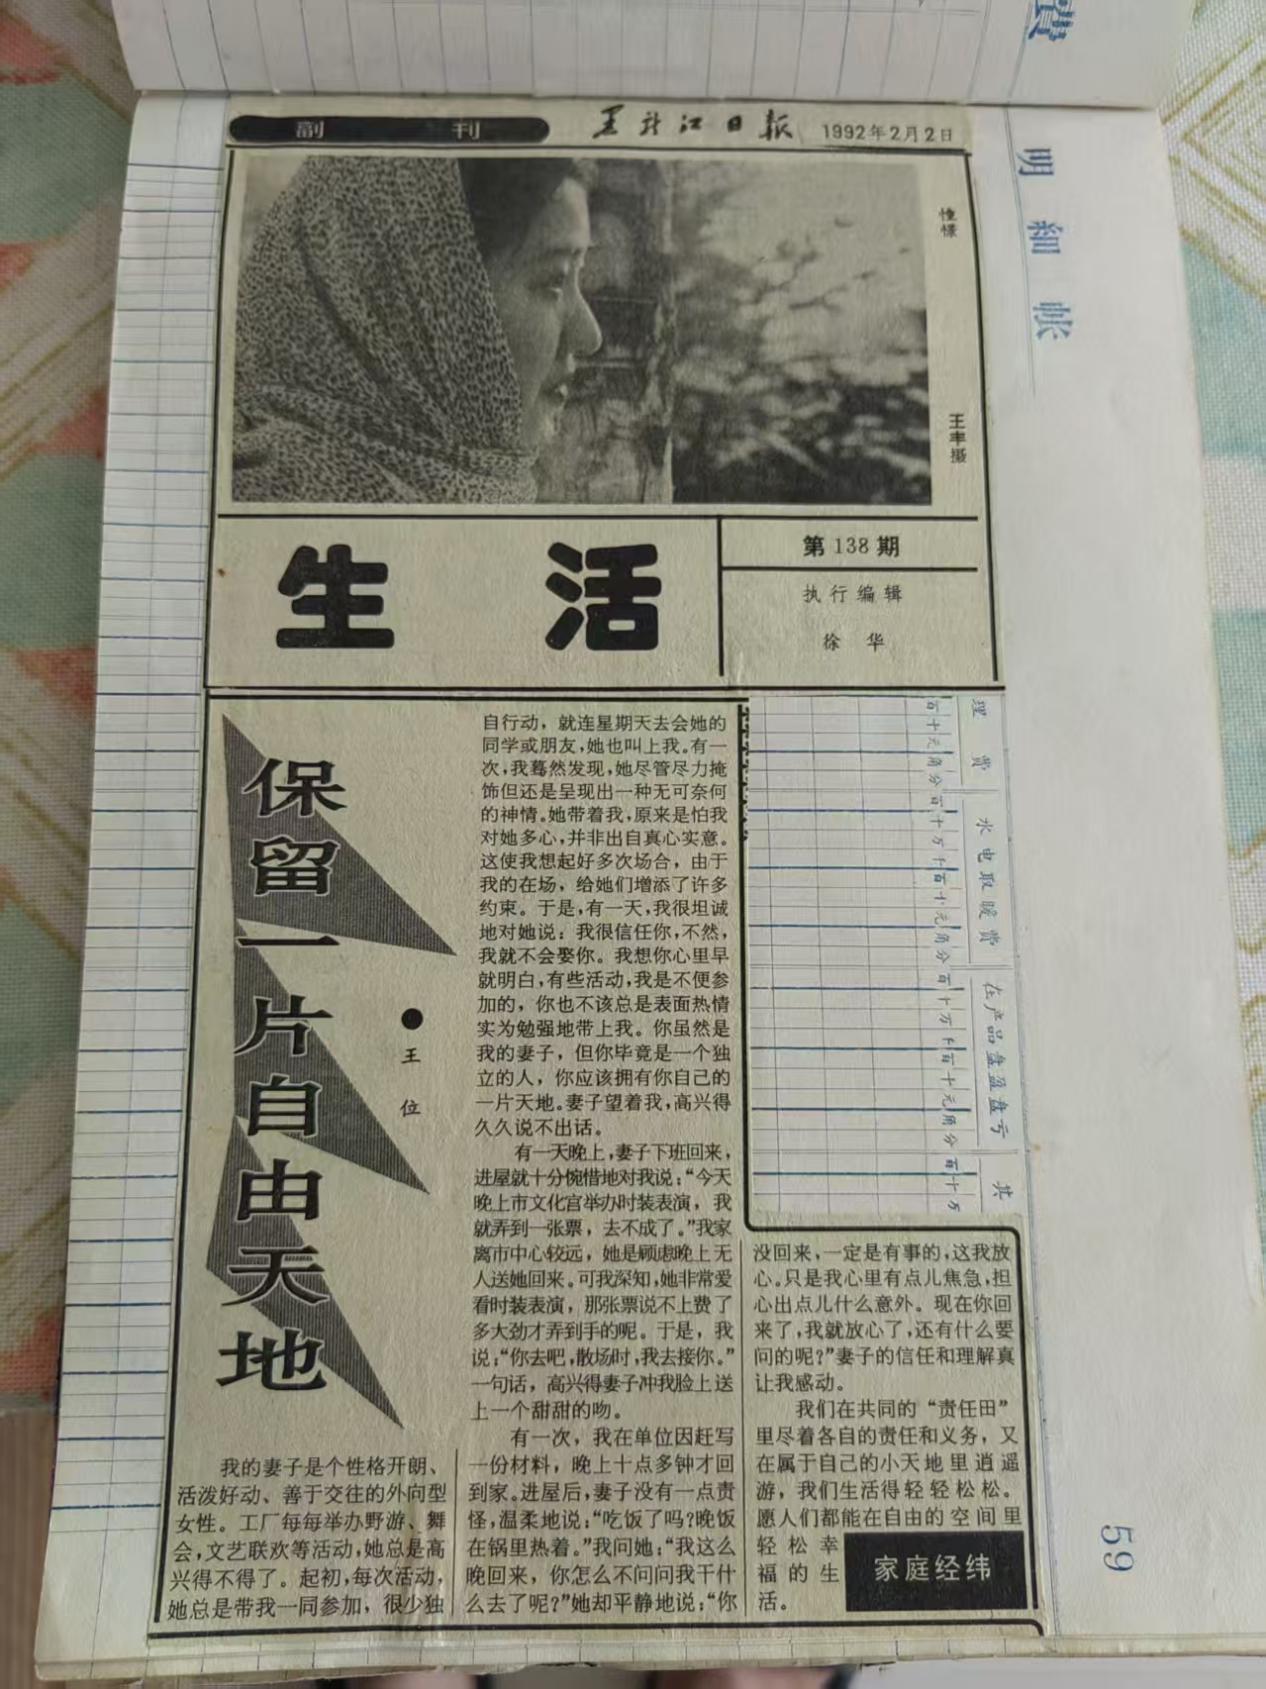 副刊
黑龙江日报
1992年2月2日
憧憬
王丰摄
生活
第138期
执行编辑
徐华
保留一片自由天地
●王位
我的妻子是个性格开朗、
活泼好动、善于交往的外向型
女性。工厂每每举办野游、舞
会,文艺联欢等活动,她总是高
兴得不得了。起初,每次活动,
她总是带我一同参加,很少独
自行动,就连星期天去会她的
同学或朋友,她也叫上我。有一
次,我蓦然发现,她尽管尽力掩
饰但还是呈现出一种无可奈何
的神情。她带着我,原来是怕我
对她多心,并非出自真心实意。
这使我想起好多次场合,由于
我的在场,给她们增添了许多
约束。于是,有一天,我很坦诚
地对她说:我很信任你,不然,
我就不会娶你。我想你心里早
就明白,有些活动,我是不便参
加的,你也不该总是表面热情
实为勉强地带上我。你虽然是
我的妻子,但你毕竟是一个独
立的人,你应该拥有你自己的
一片天地。妻子望着我,高兴得
久久说不出话。
有一天晚上,妻子下班回来,
进屋就十分惋惜地对我说:“今天
晚上市文化宫举办时装表演,我
就弄到一张票,去不成了。”我家
离市中心较远,她是顾虑晚上无
人送她回来。可我深知,她非常爱
看时装表演,那张票说不上费了
多大劲才弄到手的呢。于是,我
说:“你去吧,散场时,我去接你。”
一句话,高兴得妻子冲我脸上送
上一个甜甜的吻。
有一次,我在单位因赶写
一份材料,晚上十点多钟才回
到家。进屋后,妻子没有一点责
怪,温柔地说:“吃饭了吗?晚饭
在锅里热着。”我问她:“我这么
晚回来,你怎么不问问我干什
么去了呢?”她却平静地说:“你
没回来,一定是有事的,这我放
心。只是我心里有点儿焦急,担
心出点儿什么意外。现在你回
来了,我就放心了,还有什么要
问的呢?”妻子的信任和理解真
让我感动。
我们在共同的“责任田”
里尽着各自的责任和义务,又
在属于自己的小天地里逍遥
游,我们生活得轻轻松松。
愿人们都能在自由的空间里
轻松幸
福的生
活。
家庭经纬
理费
百十元角分百十万千百十元角分百十万千百十元角分百十万
水电取暖费
在产品盘盈盘亏
其
明细帐
59